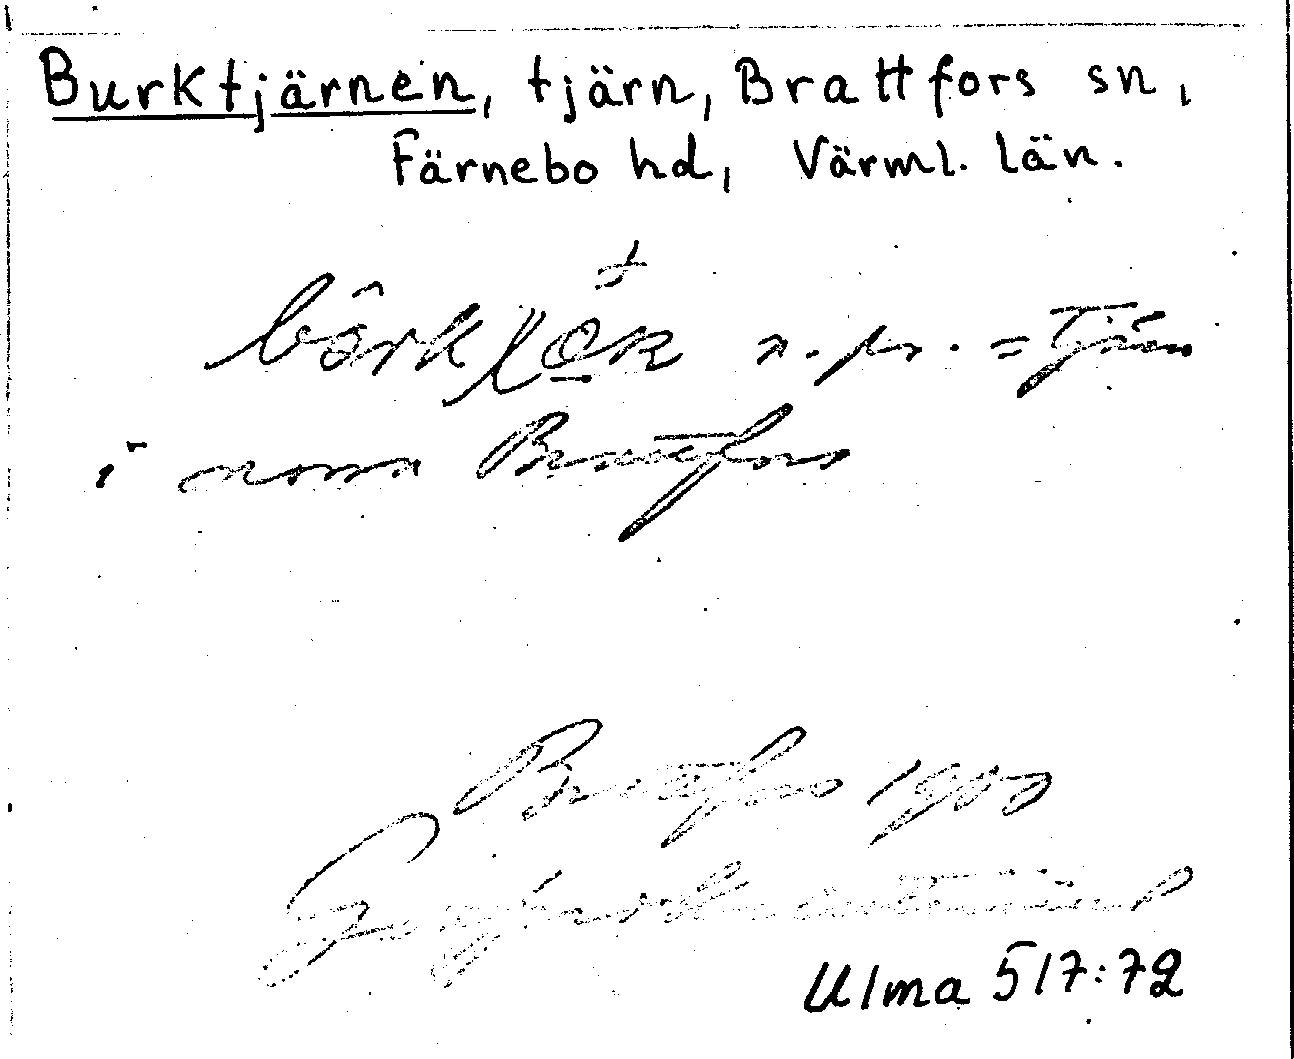 Burktjärnen, tjärn, Brattfors sn,
Färnebo hd, Värml. län.
n. pr. = tjärn
i norra Brattfors
Brattfors 1900
Ulma 517:72